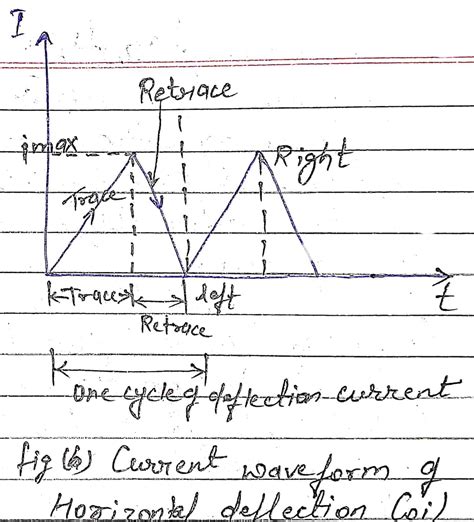 I
Retrace
imax
Right
Trace
Trace
left
t
Retrace
one cycle of deflection current
fig (b) Current waveform of
Horizontal deflection Coil